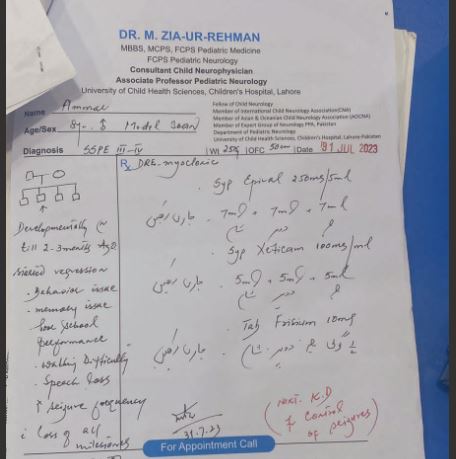 DR. M. ZIA-UR-REHMAN
MBBS, MCPS, FCPS Pediatric Medicine
FCPS Pediatric Neurology
Consultant Child Neurophysician
Associate Professor Pediatric Neurology
University of Child Health Sciences, Children's Hospital, Lahore
Fellow of Child Neurology
Member of International Child Neurology Association(CNA)
Member of Asian & Oceanian Child Neurology Association (AOCNA)
Member of Expert Group of Neurology PPA, Pakistan
Department of Pediatric Neurology
University of Child Health Sciences, Children's Hospital, Lahore-Pakistan
Name Ammar
Age/Sex 8yr Model Town
Diagnosis SSPE III-IV Wt OFC 50cm Date 31 JUL 2023
Rx DRE-myoclonic
Syp Epival 250mg/5ml
جاری رکھیں 7ml + 7ml + 7ml
صبح دوپہر شام
Syp Xeticam 100mg/ml
جاری رکھیں 5ml + 5ml + 5ml
صبح دوپہر شام
Tab Frisium 10mg
جاری رکھیں گولی صبح دوپہر شام
Developmentally
till 2-3 months
regression
. Behavior issue
. memory issue
low school
performance
. walking Difficulty
. Speech loss
↑ seizure frequency
loss of all
milestones
31.7.23
(next. K.D
control
of seizures)
For Appointment Call